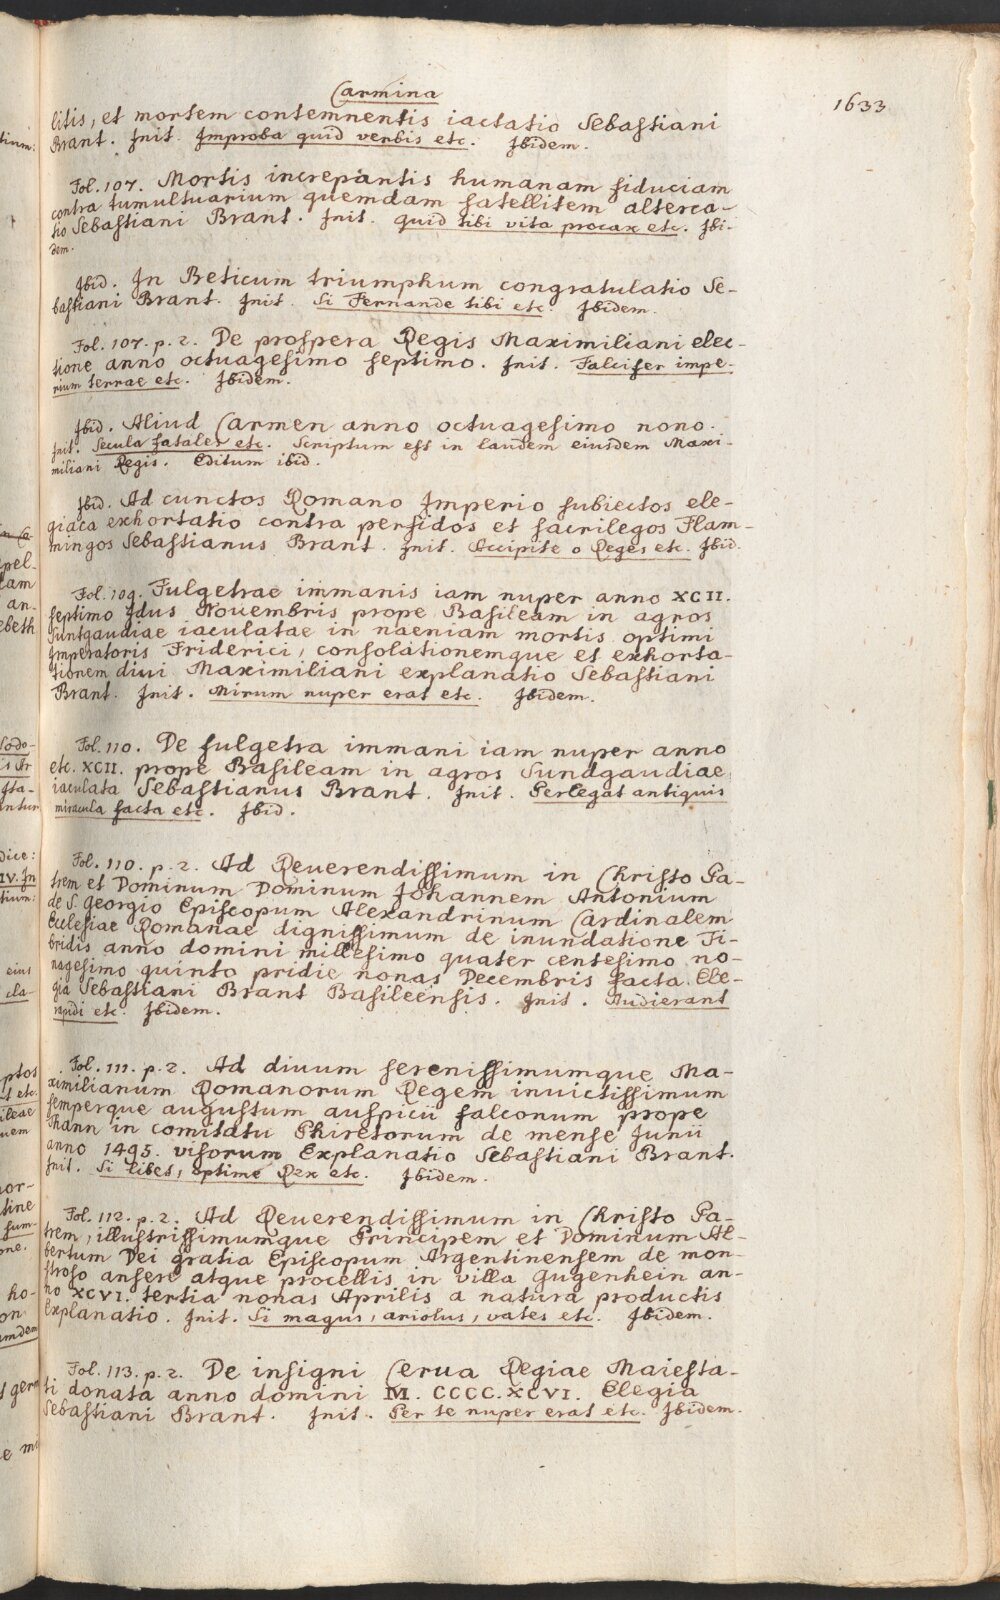 Carmina
1633
litis, et mortem contemnentis iactatio Sebastiani
Brant. Init. Improba quid verbis etc. Ibidem.
Fol. 107. Mortis increpantis humanam fiduciam
contra tumultuarium quemdam satellitem alterca-
tio Sebastiani Brant. Init. quid tibi vita procax etc. Ibi-
dem.
Ibid. In Beticum triumphum congratulatio Se-
bastiani Brant. Init. Si Fernande tibi etc. Ibidem.
Fol. 107. p. 2. De prospera Regis Maximiliani elec-
tione anno octuagesimo septimo. Init. Falcifer impe-
rium terrae etc. Ibidem.
Ibid. Aliud Carmen anno octuagesimo nono.
Init. Secula fatales etc. Scriptum est in laudem eiusdem Maxi-
miliani Regis. Editum ibid.
Ibid. Ad cunctos Romano Imperio subiectos ele-
giaca exhortatio contra perfidos et sacrilegos Flam-
mingos Sebastianus Brant. Init. Accipite o Reges etc. Ibid.
Fol. 109. Fulgetrae immanis iam nuper anno XCII.
septimo Idus Novembris prope Basileam in agros
Suntgaudiae iaculatae in naeniam mortis optimi
Imperatoris Friderici, consolationemque et exhorta-
tionem divi Maximiliani explanatio Sebastiani
Brant. Init. Mirum nuper erat etc. Ibidem.
Fol. 110. De fulgetra immani iam nuper anno
etc. XCII. prope Basileam in agros Sundgaudiae
iaculata Sebastianus Brant. Init. Perlegat antiquis
miracula facta etc. Ibid.
Fol. 110. p. 2. Ad Reuerendissimum in Christo Pa-
trem et Dominum Dominum Johannem Antonium
de S. Georgio Episcopum Alexandrinum Cardinalem
Ecclesiae Romanae dignissimum de inundatione Ti-
bridis anno domini millesimo quater centesimo no-
nagesimo quinto pridie nonas Decembris facta Ele-
gia Sebastiani Brant Basileensis. Init. Audierant
rapidi etc. Ibidem.
Fol. 111. p. 2. Ad diuum serenissimumque Ma-
ximilianum Romanorum Regem invictissimum
semperque augustum auspicii falconum prope
Thann in comitatu Phiretorum de mense Junii
anno 1495. visorum Explanatio Sebastiani Brant.
Init. Si libet, optime Rex etc. Ibidem.
Fol. 112. p. 2. Ad Reuerendissimum in Christo Pa-
trem, illustrissimumque Principem et Dominum Al-
bertum Dei gratia Episcopum Argentinensem de mon-
stroso ansere atque procellis in villa Gugenhein an-
no XCVI. tertia nonas Aprilis a natura productis
Explanatio. Init. Si magus, ariolus, vates etc. Ibidem.
Fol. 113. p. 2. De insigni Cerua Regiae Maiesta-
ti donata anno domini M. CCCC. XCVI. Elegia
Sebastiani Brant. Init. Per te nuper erat etc. Ibidem.